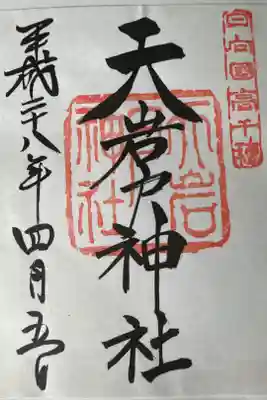 日向國高千穂
天岩戸神社
平成二十八年四月五日